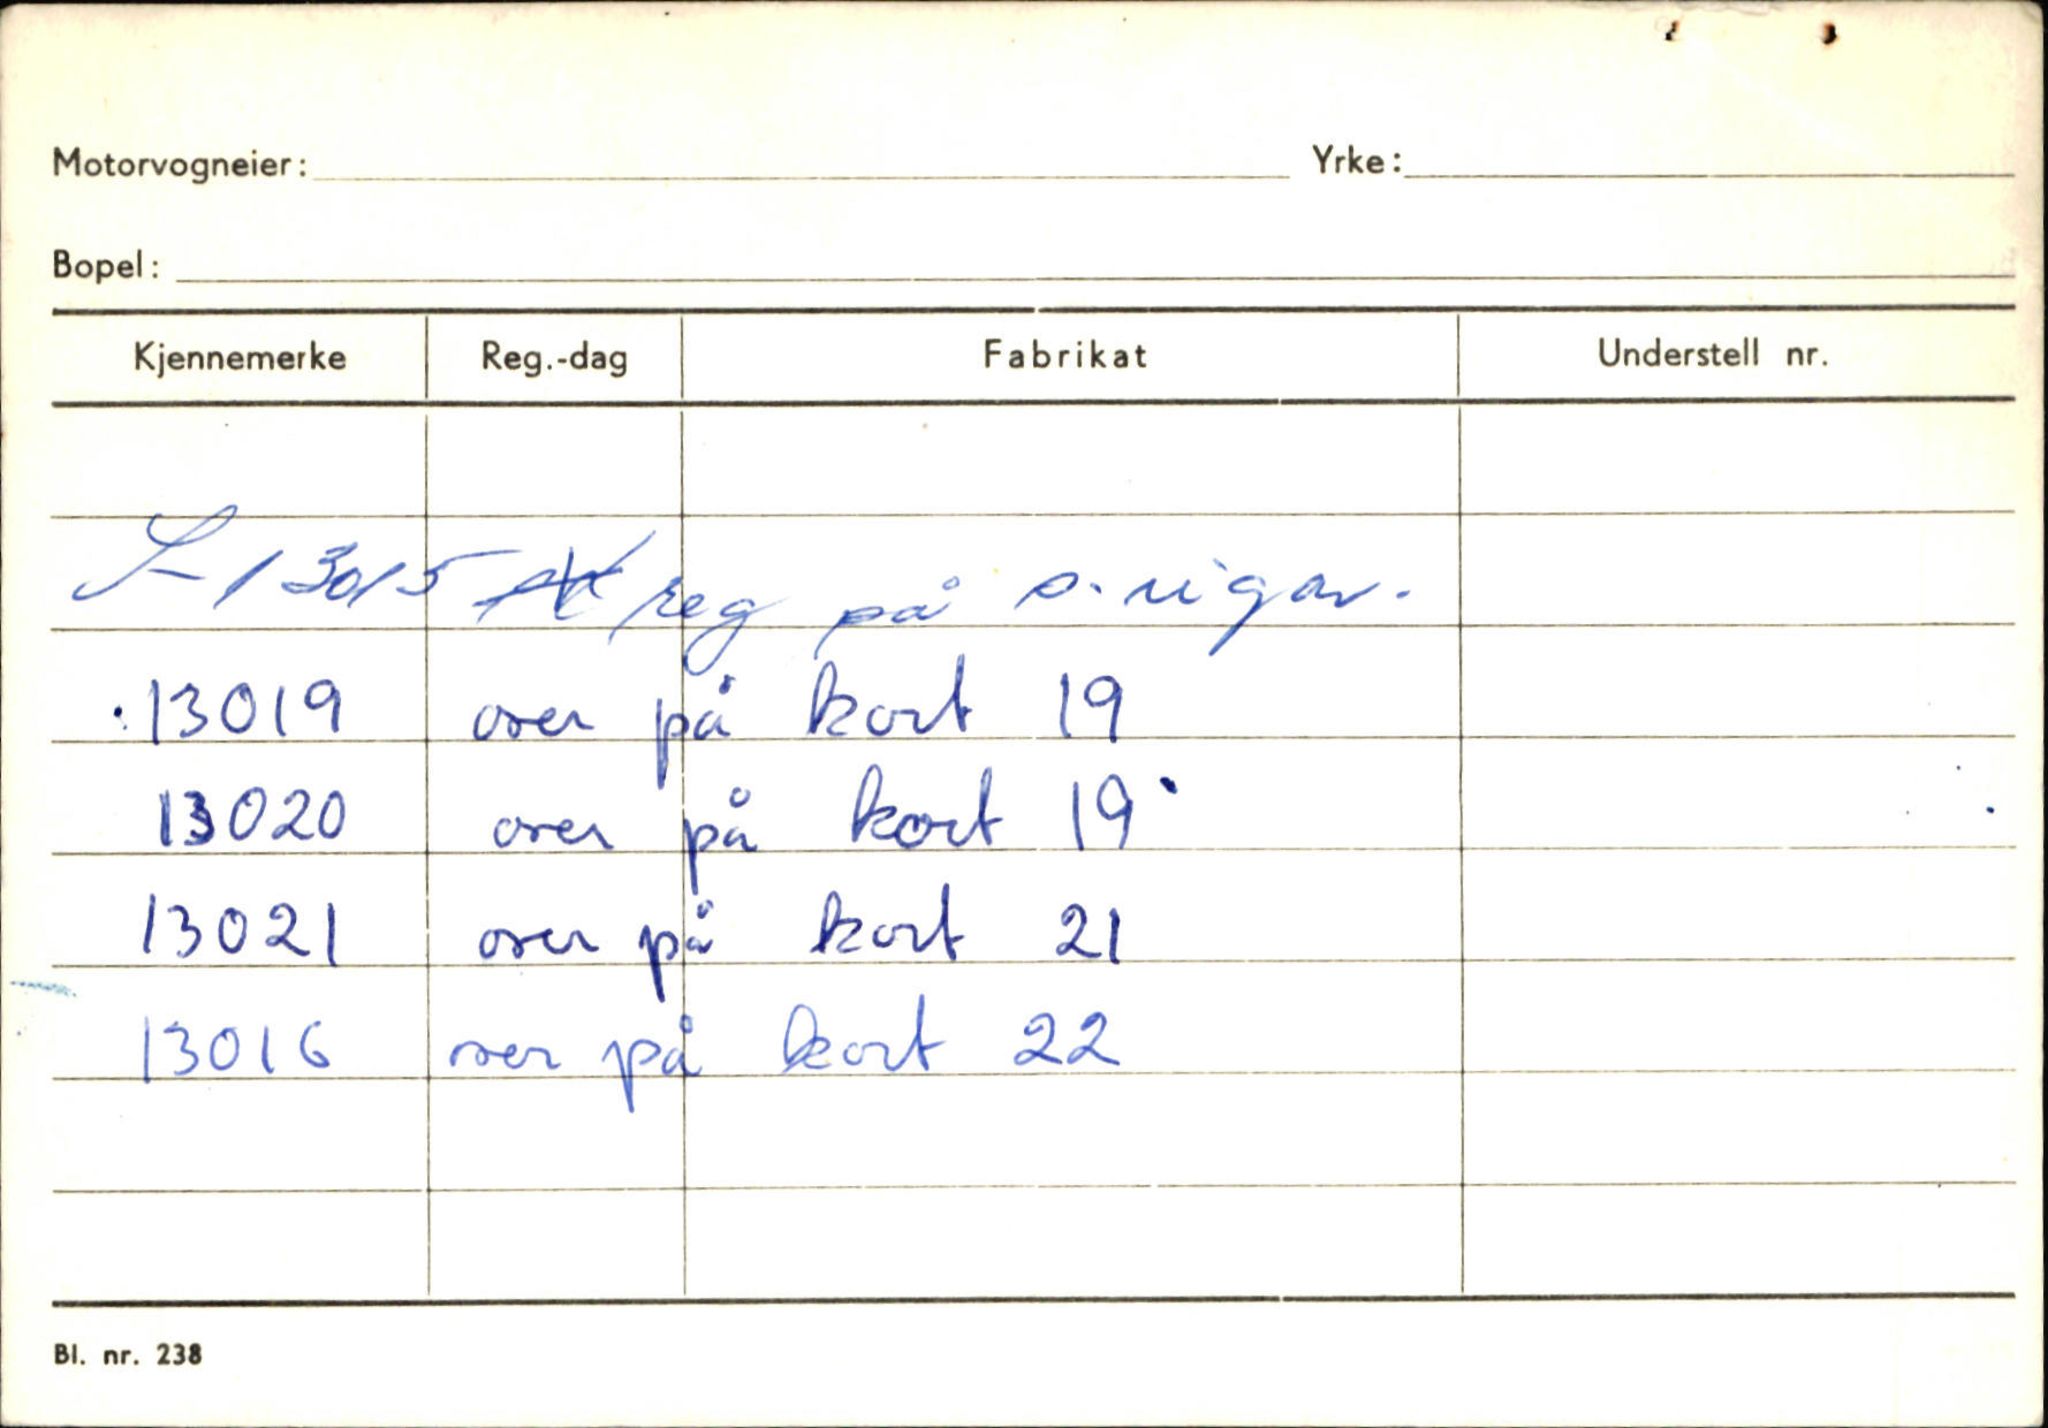 Motorvogneier: Yrke:
Bopel:
Kjennemerke Reg.-dag Fabrikat Understell nr.
S-13015 reg på
13019 over på kort 19
13020 over på kort 19
13021 over på kort 21
13016 over på kort 22
Bl. nr. 238